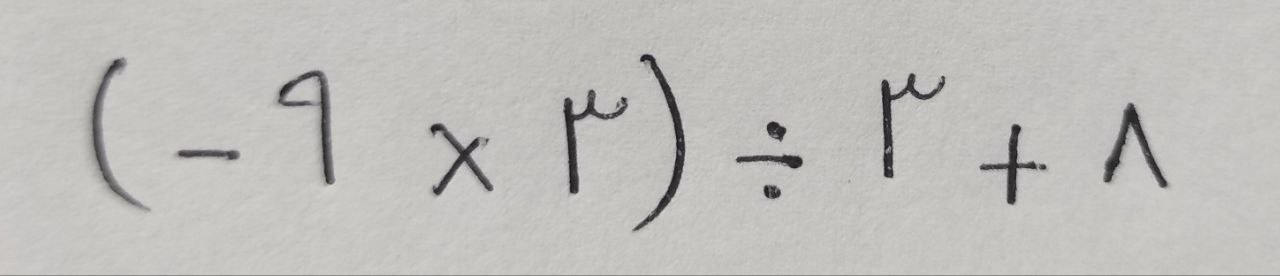 (-۹ × ۳) ÷ ۳ + ۸